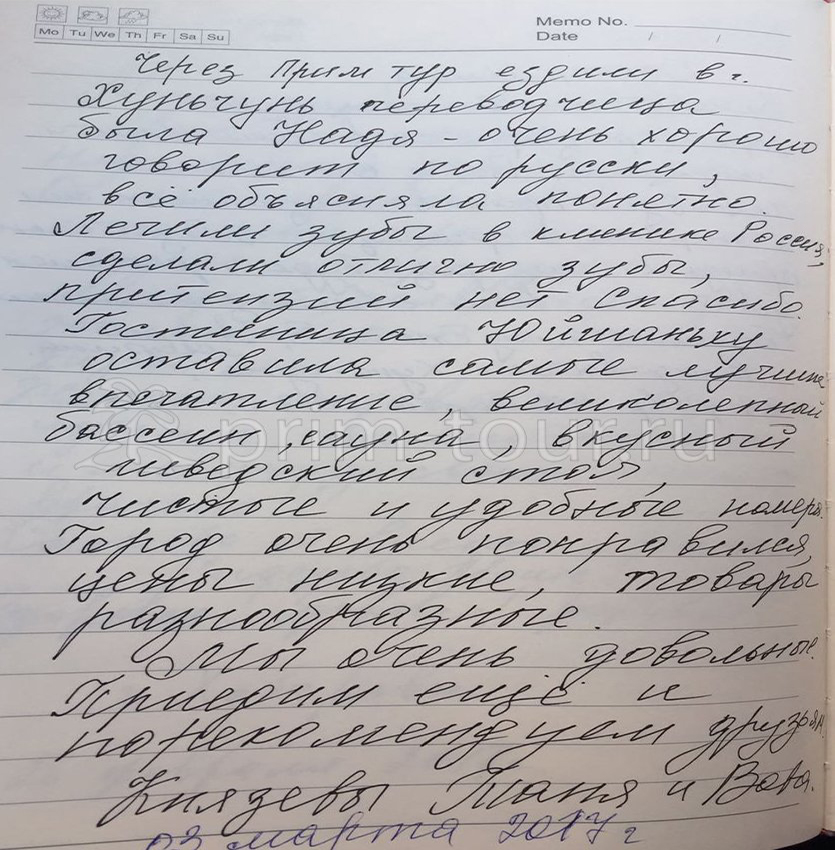 Memo No.
Mo Tu We Th Fr Sa Su
Date / /
Через Прим тур ездили в г.
Хуньчунь переводчица
была Надя - очень хорошо
говорит по русски,
всё объясняла понятно.
Лечили зубы в клинике Россия,
сделали отлично зубы,
притензий нет Спасибо.
Гостиница Юйшаньху
оставила самые лучшие
впечатление, великолепный
бассеин, сауна, вкусный
шведский стол,
чистые и удобные номера.
Город очень понравился,
цены низкие, товары
разнообразные.
Мы очень довольные.
Приедим ещё и
порекомендуем друзьям.
Князевы Таня и Вова.
03 марта 2017 г
prim-tour.ru